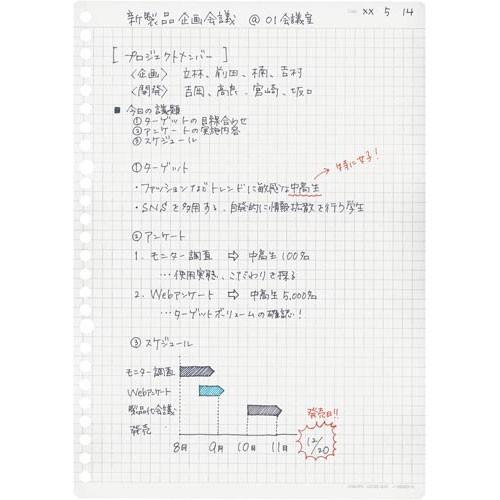 新製品企画会議 @ 01会議室
XX 5 14
[ プロジェクトメンバー ]
〈企画〉 立林、前田、楠、吉村
〈開発〉 吉岡、高原、宮崎、坂口
■ 今日の議題
①ターゲットの目線合わせ
②アンケートの実施内容
③スケジュール
①ターゲット
特に女子!
・ファッションなどトレンドに敏感な中高生
・SNSを多用する、自発的に情報拡散を行う学生
② アンケート
1. モニター調査 ⇨ 中高生 100名
…使用実態、こだわりを探る
2. Webアンケート ⇨ 中高生 5,000名
…ターゲットボリュームの確認!
③ スケジュール
モニター調査
Webアンケート
製品化会議
発売
発売日!!
8月 9月 10月 11月
12/20